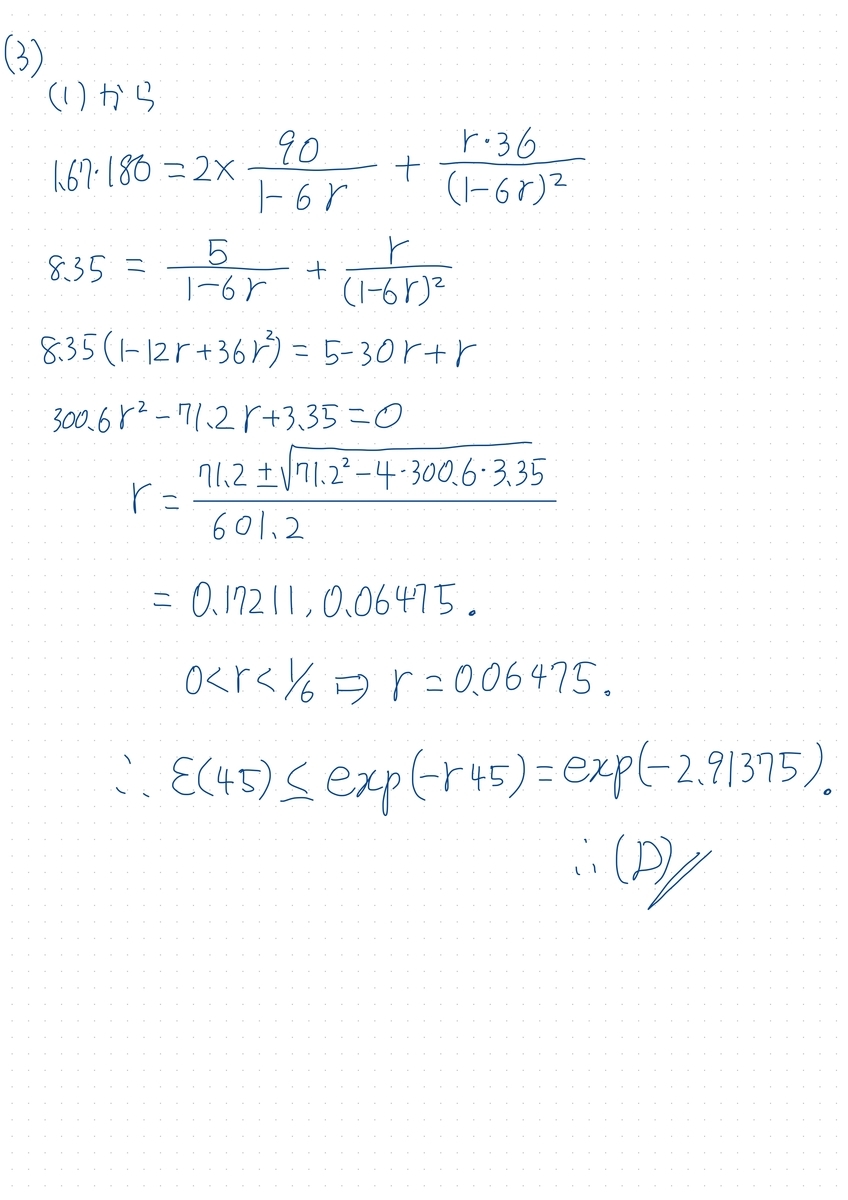 (3)
(1)から
1.67・180 = 2× 90/(1-6r) + r・36/(1-6r)²
8.35 = 5/(1-6r) + r/(1-6r)²
8.35(1-12r+36r²) = 5-30r+r
300.6r² - 71.2r + 3.35 = 0
r = (71.2 ± √(71.2² - 4・300.6・3.35))/601.2
= 0.17211, 0.06475.
0<r<1/6 ⇒ r = 0.06475.
∴ ε(45) ≤ exp(-r45) = exp(-2.91375).
∴ (D)//